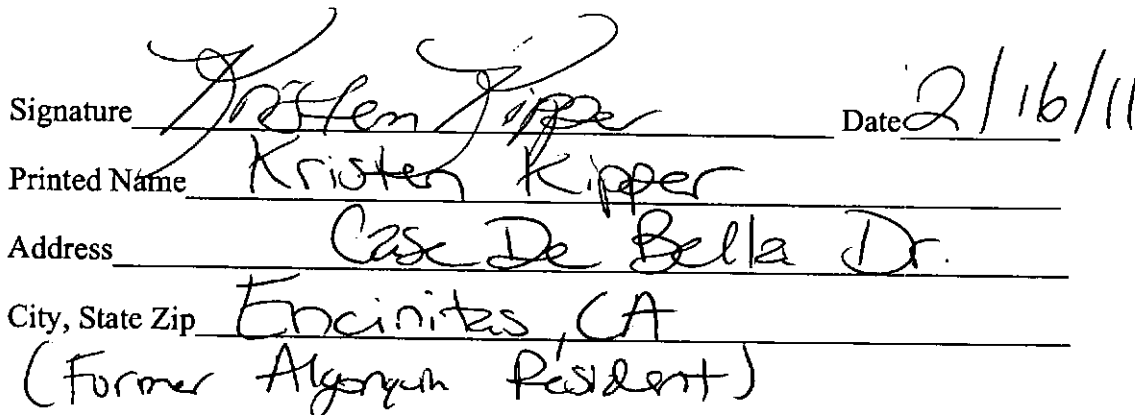 Signature Kristen Kipper Date 2/16/11
Printed Name Kristen Kipper
Address Case De Bella Dr.
City, State Zip Encinitas, CA
(Former Algonquin Resident)